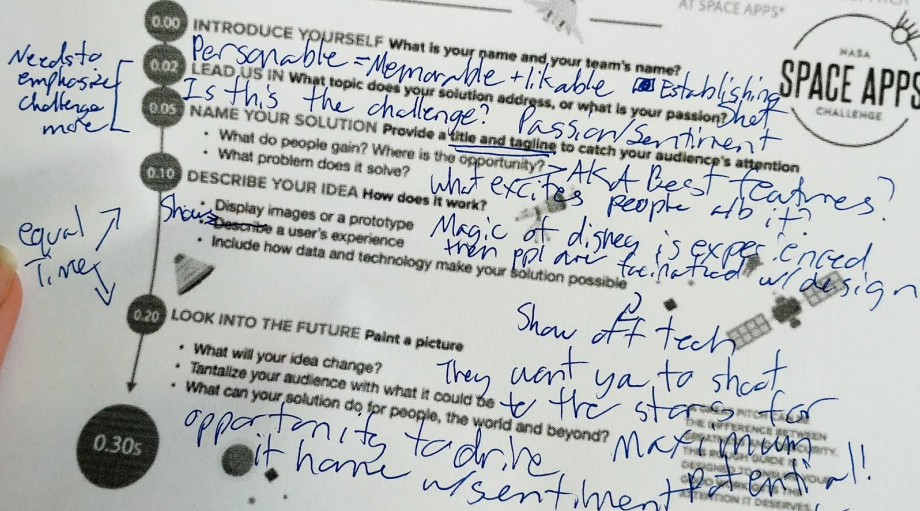 AT SPACE APPS*
NASA
SPACE APPS
CHALLENGE
0.00
INTRODUCE YOURSELF What is your name and your team's name?
Personable = Memorable + likable
Needs to
emphasize
challenge
more
0.02
LEAD US IN What topic does your solution address, or what is your passion?
Establishing
Shot
Is this the challenge? Passion/Sentiment
0.05
NAME YOUR SOLUTION Provide a title and tagline to catch your audience's attention
• What do people gain? Where is the opportunity?
• What problem does it solve?
> AKA Best features?
what excites people abt it?
0.10
DESCRIBE YOUR IDEA How does it work?
• Display images or a prototype
Show
• Describe a user's experience
• Include how data and technology make your solution possible
Magic of disney is experienced
then ppl are facinated w/ design
equal
Time
Show off tech
0.20
LOOK INTO THE FUTURE Paint a picture
• What will your idea change?
• Tantalize your audience with what it could be
• What can your solution do for people, the world and beyond?
They want ya to shoot
to the stars for
Maximum
potential!
opportunity to drive
it home
w/ sentiment
0.30s
THE DIFFERENCE BETWEEN
DESERVES